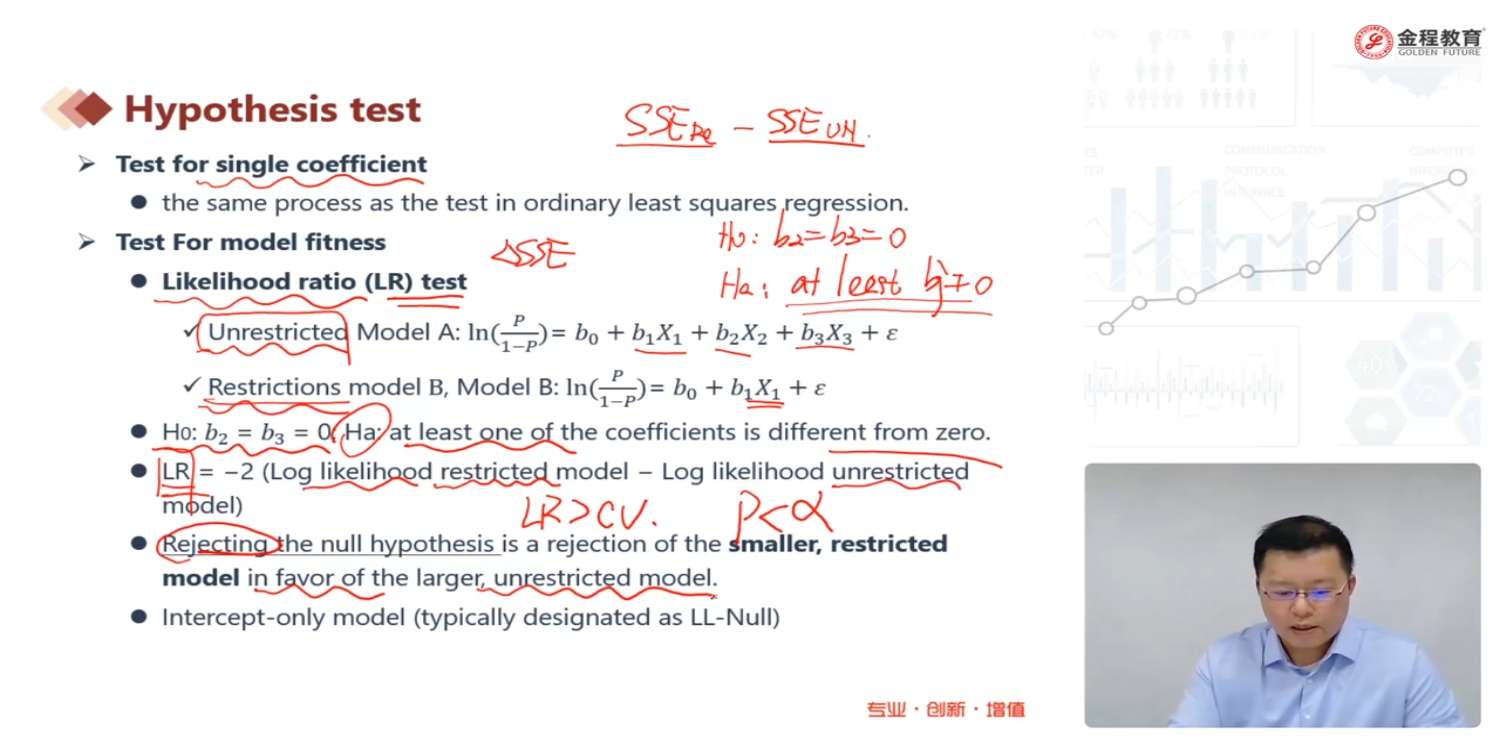 金程教育
GOLDEN FUTURE
Hypothesis test
SSE_Re − SSE_UN.
➤ Test for single coefficient
● the same process as the test in ordinary least squares regression.
➤ Test For model fitness
△SSE
H₀: b₂=b₃=0
● Likelihood ratio (LR) test
Ha: at least bj≠0
✓ Unrestricted Model A: ln(P/1−P)= b₀ + b₁X₁ + b₂X₂ + b₃X₃ + ε
✓ Restrictions model B, Model B: ln(P/1−P)= b₀ + b₁X₁ + ε
● H0: b₂ = b₃ = 0, Ha: at least one of the coefficients is different from zero.
● LR = −2 (Log likelihood restricted model − Log likelihood unrestricted
model)
LR>CV. P<α
● Rejecting the null hypothesis is a rejection of the smaller, restricted
model in favor of the larger, unrestricted model.
● Intercept-only model (typically designated as LL-Null)
专业·创新·增值